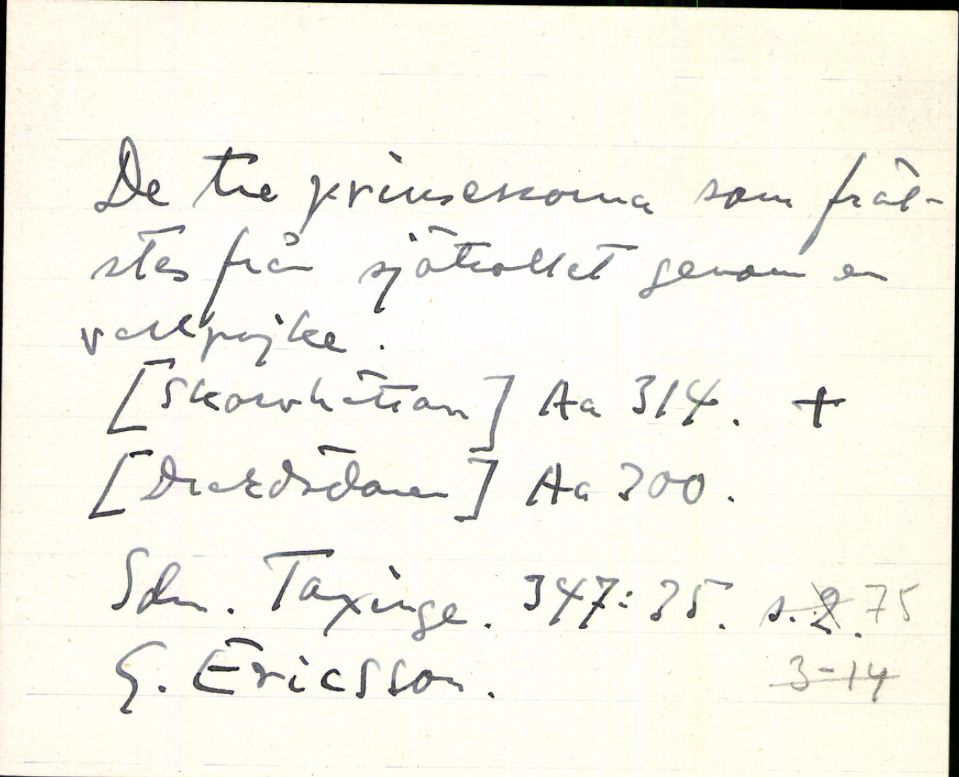 De tre prinsessorna som fräl-
stes från sjötrollet genom en
vallpojke.
[Skorvhättan] Aa 314. +
[Drakdödaren] Aa 300.
Sdm. Taxinge. 347:35. s. 2. 75
G. Ericsson. 3-14